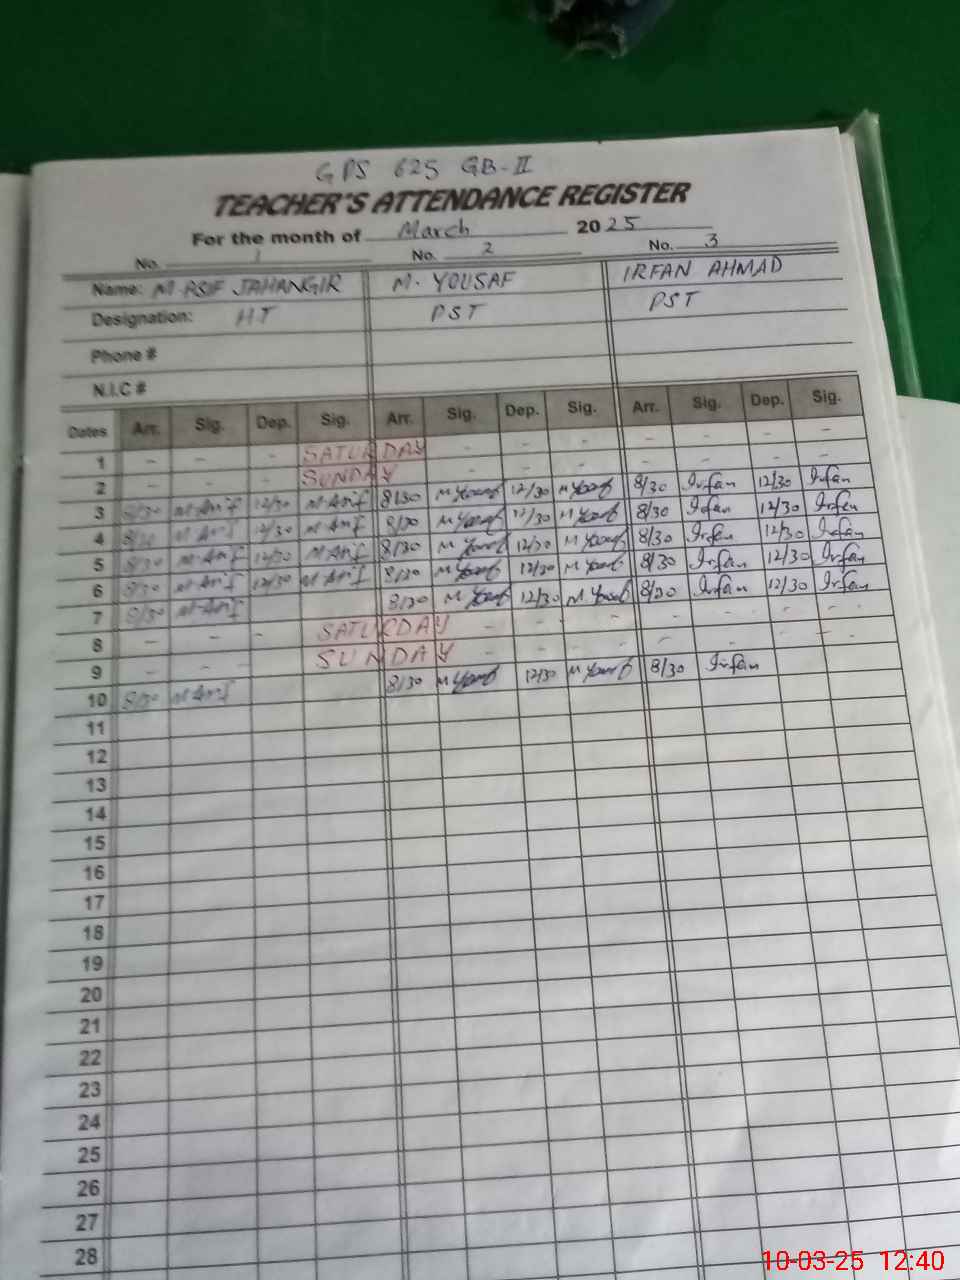 GPS 625 GB-II
TEACHER'S ATTENDANCE REGISTER
For the month of March 2025
No. 1 No. 2 No. 3
Name: M. ASIF JAHANGIR M. YOUSAF IRFAN AHMAD
Designation: HT PST PST
Phone #
N.I.C #
Dates Arr. Sig. Dep. Sig. Arr. Sig. Dep. Sig. Arr. Sig. Dep. Sig.
1 - - - SATURDAY - - - - - - -
2 - - - SUNDAY - - - - - - -
3 8/30 M Asif 12/30 M Asif 8/30 M Yousf 12/30 M Yousf 8/30 Irfan 12/30 Irfan
4 8/30 M Asif 12/30 M Asif 8/30 M Yousf 12/30 M Yousf 8/30 Irfan 12/30 Irfan
5 8/30 M Asif 12/30 M Asif 8/30 M Yousf 12/30 M Yousf 8/30 Irfan 12/30 Irfan
6 8/30 M Asif 12/30 M Asif 8/30 M Yousf 12/30 M Yousf 8/30 Irfan 12/30 Irfan
7 8/30 M Asif 8/30 M Yousf 12/30 M Yousf 8/30 Irfan 12/30 Irfan
8 - - - SATURDAY - - - - - - -
9 - - - SUNDAY - - - - - - -
10 8/30 M Asif 8/30 M Yousf 12/30 M Yousf 8/30 Irfan
11
12
13
14
15
16
17
18
19
20
21
22
23
24
25
26
27
28
10-03-25 12:40